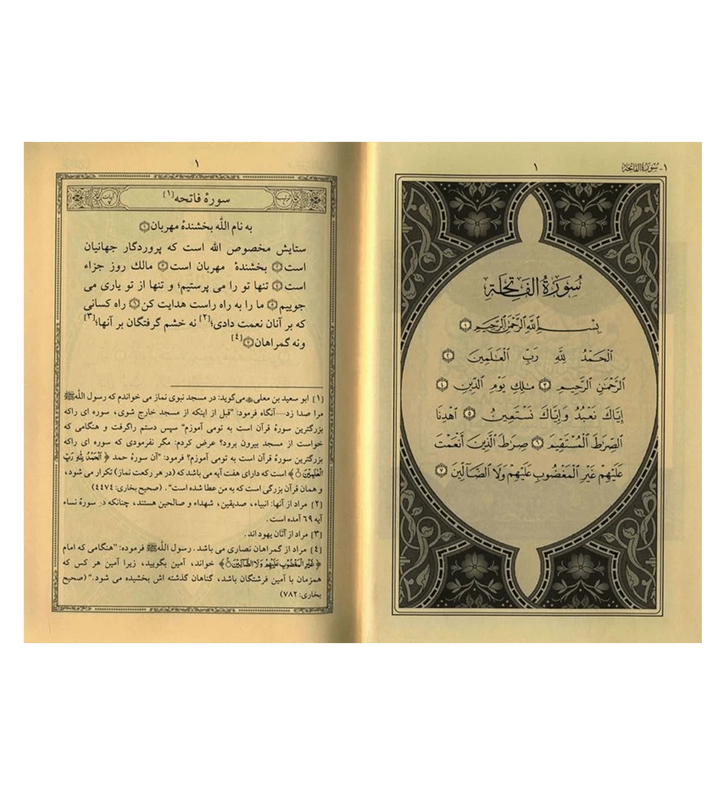 ١- سورة الفاتحة
١
سُورَةُ الفَاتِحَةِ
بِسْمِ اللَّهِ الرَّحْمَٰنِ الرَّحِيمِ ١
الْحَمْدُ لِلَّهِ رَبِّ الْعَالَمِينَ ٢
الرَّحْمَٰنِ الرَّحِيمِ ٣ مَالِكِ يَوْمِ الدِّينِ ٤
إِيَّاكَ نَعْبُدُ وَإِيَّاكَ نَسْتَعِينُ ٥ اهْدِنَا
الصِّرَاطَ الْمُسْتَقِيمَ ٦ صِرَاطَ الَّذِينَ أَنْعَمْتَ
عَلَيْهِمْ غَيْرِ الْمَغْضُوبِ عَلَيْهِمْ وَلَا الضَّالِّينَ ٧
١
سورهٔ فاتحه [١]
به نام الله بخشندهٔ مهربان
ستایش مخصوص الله است که پروردگار جهانیان
است بخشندهٔ مهربان است مالك روز جزاء
است تنها تو را می پرستیم؛ و تنها از تو یاری می
جوییم ما را به راه راست هدایت کن راه کسانی
که بر آنان نعمت دادی؛[٢] نه خشم گرفتگان بر آنها؛[٣]
ونه گمراهان [٤]
[١] ابو سعید بن معلی می‌گوید: در مسجد نبوی نماز می خواندم که رسول اللهﷺ
مرا صدا زد—آنگاه فرمود: "قبل از اینکه از مسجد خارج شوی، سوره ای راکه
بزرگترین سورهٔ قرآن است به تومی آموزم" سپس دستم راگرفت و هنگامی که
خواست از مسجد بیرون برود؟ عرض کردم: مگر نفرمودی که سوره ای راکه
بزرگترین سورهٔ قرآن است به تومی آموزم؟ فرمود: "آن سورهٔ حمد ﴿ الْحَمْدُ لِلَّهِ رَبِّ
الْعَالَمِينَ ﴾ است که دارای هفت آیه می باشد که (در هر رکعت نماز) تکرار می شود،
و همان قرآن بزرگی است که به من عطا شده است". (صحیح بخاری: ٤٤٧٤)
[٢] مراد از آنها: انبیاء، صدیقین، شهداء و صالحین هستند، چنانکه در سورهٔ نساء
آیه ٦٩ آمده است.
[٣] مراد از آنان یهود اند.
[٤] مراد از گمراهان نصاری می باشد. رسول اللهﷺ فرموده: "هنگامی که امام
﴿ غَيْرِ الْمَغْضُوبِ عَلَيْهِمْ وَلَا الضَّالِّينَ ﴾ خواند، آمین بگویید، زیرا آمین هر کس که
همزمان با آمین فرشتگان باشد، گناهان گذشته اش بخشیده می شود." (صحیح
بخاری: ٧٨٢)